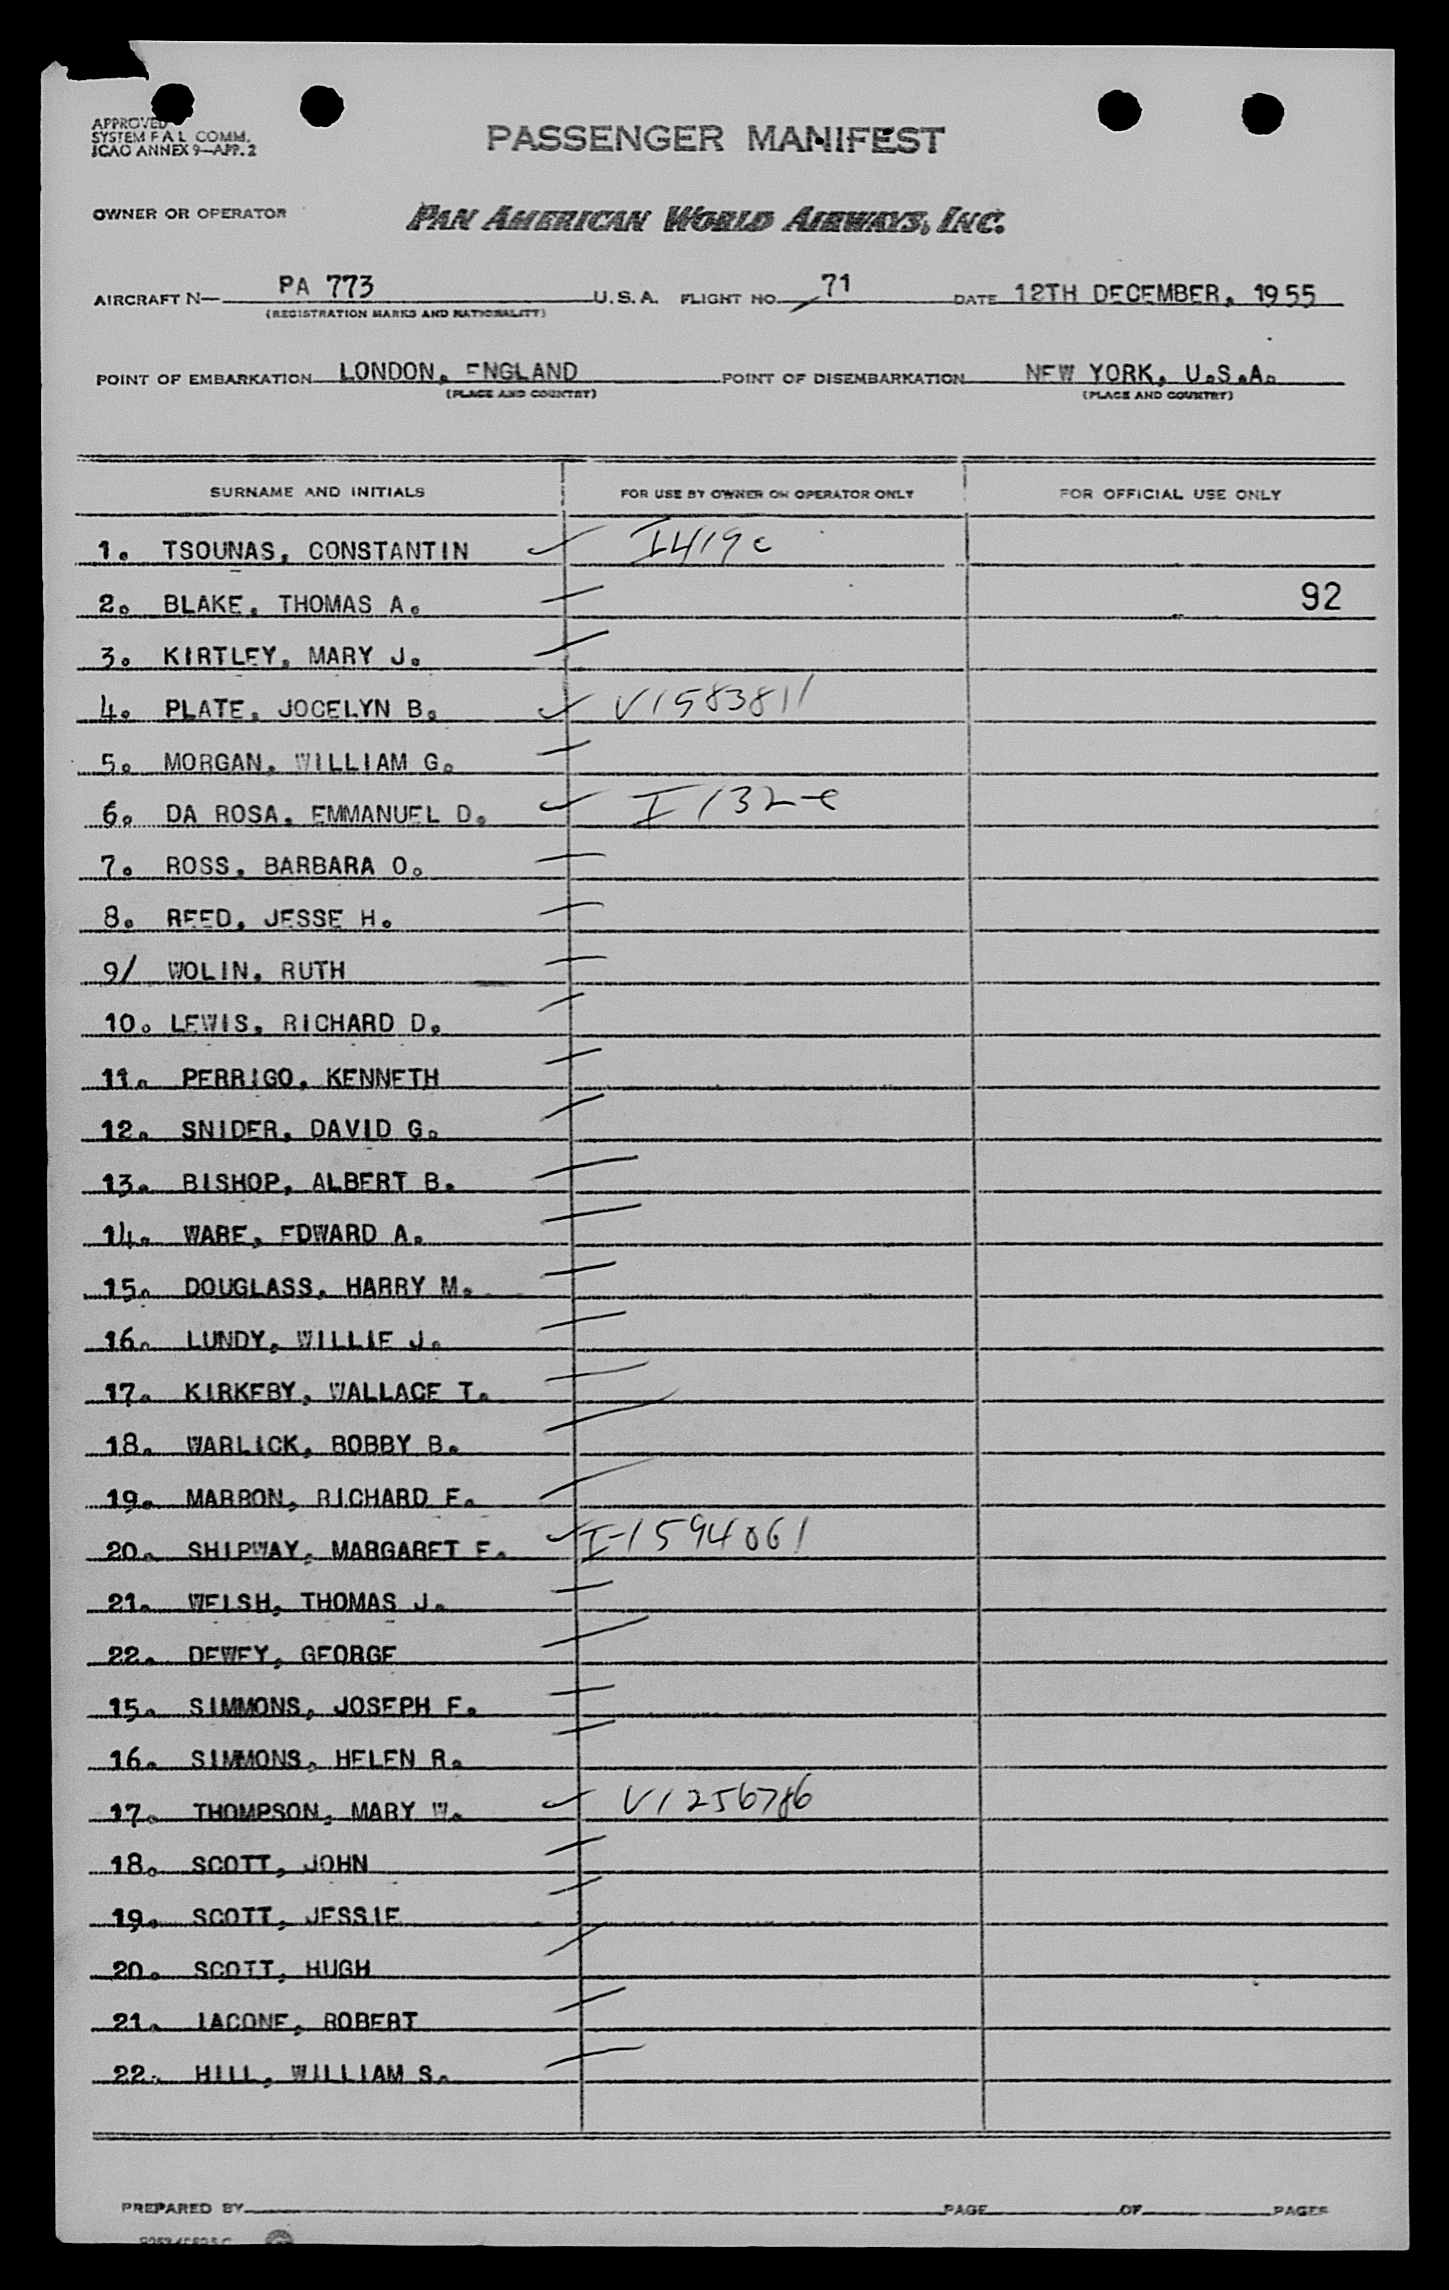 APPROVED
SYSTEM F A L COMM.
ICAO ANNEX 9—APP. 2
PASSENGER MANIFEST
OWNER OR OPERATOR
PAN AMERICAN WORLD AIRWAYS, INC.
AIRCRAFT N— PA 773 U.S.A. FLIGHT NO. 71 DATE 12TH DECEMBER, 1955
(REGISTRATION MARKS AND NATIONALITY)
POINT OF EMBARKATION LONDON, ENGLAND POINT OF DISEMBARKATION NEW YORK, U.S.A.
(PLACE AND COUNTRY) (PLACE AND COUNTRY)
SURNAME AND INITIALS FOR USE BY OWNER OR OPERATOR ONLY FOR OFFICIAL USE ONLY
1. TSOUNAS, CONSTANTIN I419c
2. BLAKE, THOMAS A. 92
3. KIRTLEY, MARY J.
4. PLATE, JOCELYN B. V1583811
5. MORGAN, WILLIAM G.
6. DA ROSA, EMMANUEL D. I 132-e
7. ROSS, BARBARA O.
8. REED, JESSE H.
9/ WOLIN, RUTH
10. LEWIS, RICHARD D.
11. PERRIGO, KENNETH
12. SNIDER, DAVID G.
13. BISHOP, ALBERT B.
14. WARE, EDWARD A.
15. DOUGLASS, HARRY M.
16. LUNDY, WILLIE J.
17. KIRKEBY, WALLACE T.
18. WARLICK, BOBBY B.
19. MARRON, RICHARD E.
20. SHIPWAY, MARGARET E. I-1594061
21. WELSH, THOMAS J.
22. DEWEY, GEORGE
15. SIMMONS, JOSEPH F.
16. SIMMONS, HELEN R.
17. THOMPSON, MARY W. V1256786
18. SCOTT, JOHN
19. SCOTT, JESSIE
20. SCOTT, HUGH
21. IACONE, ROBERT
22. HILL, WILLIAM S.
PREPARED BY PAGE OF PAGES